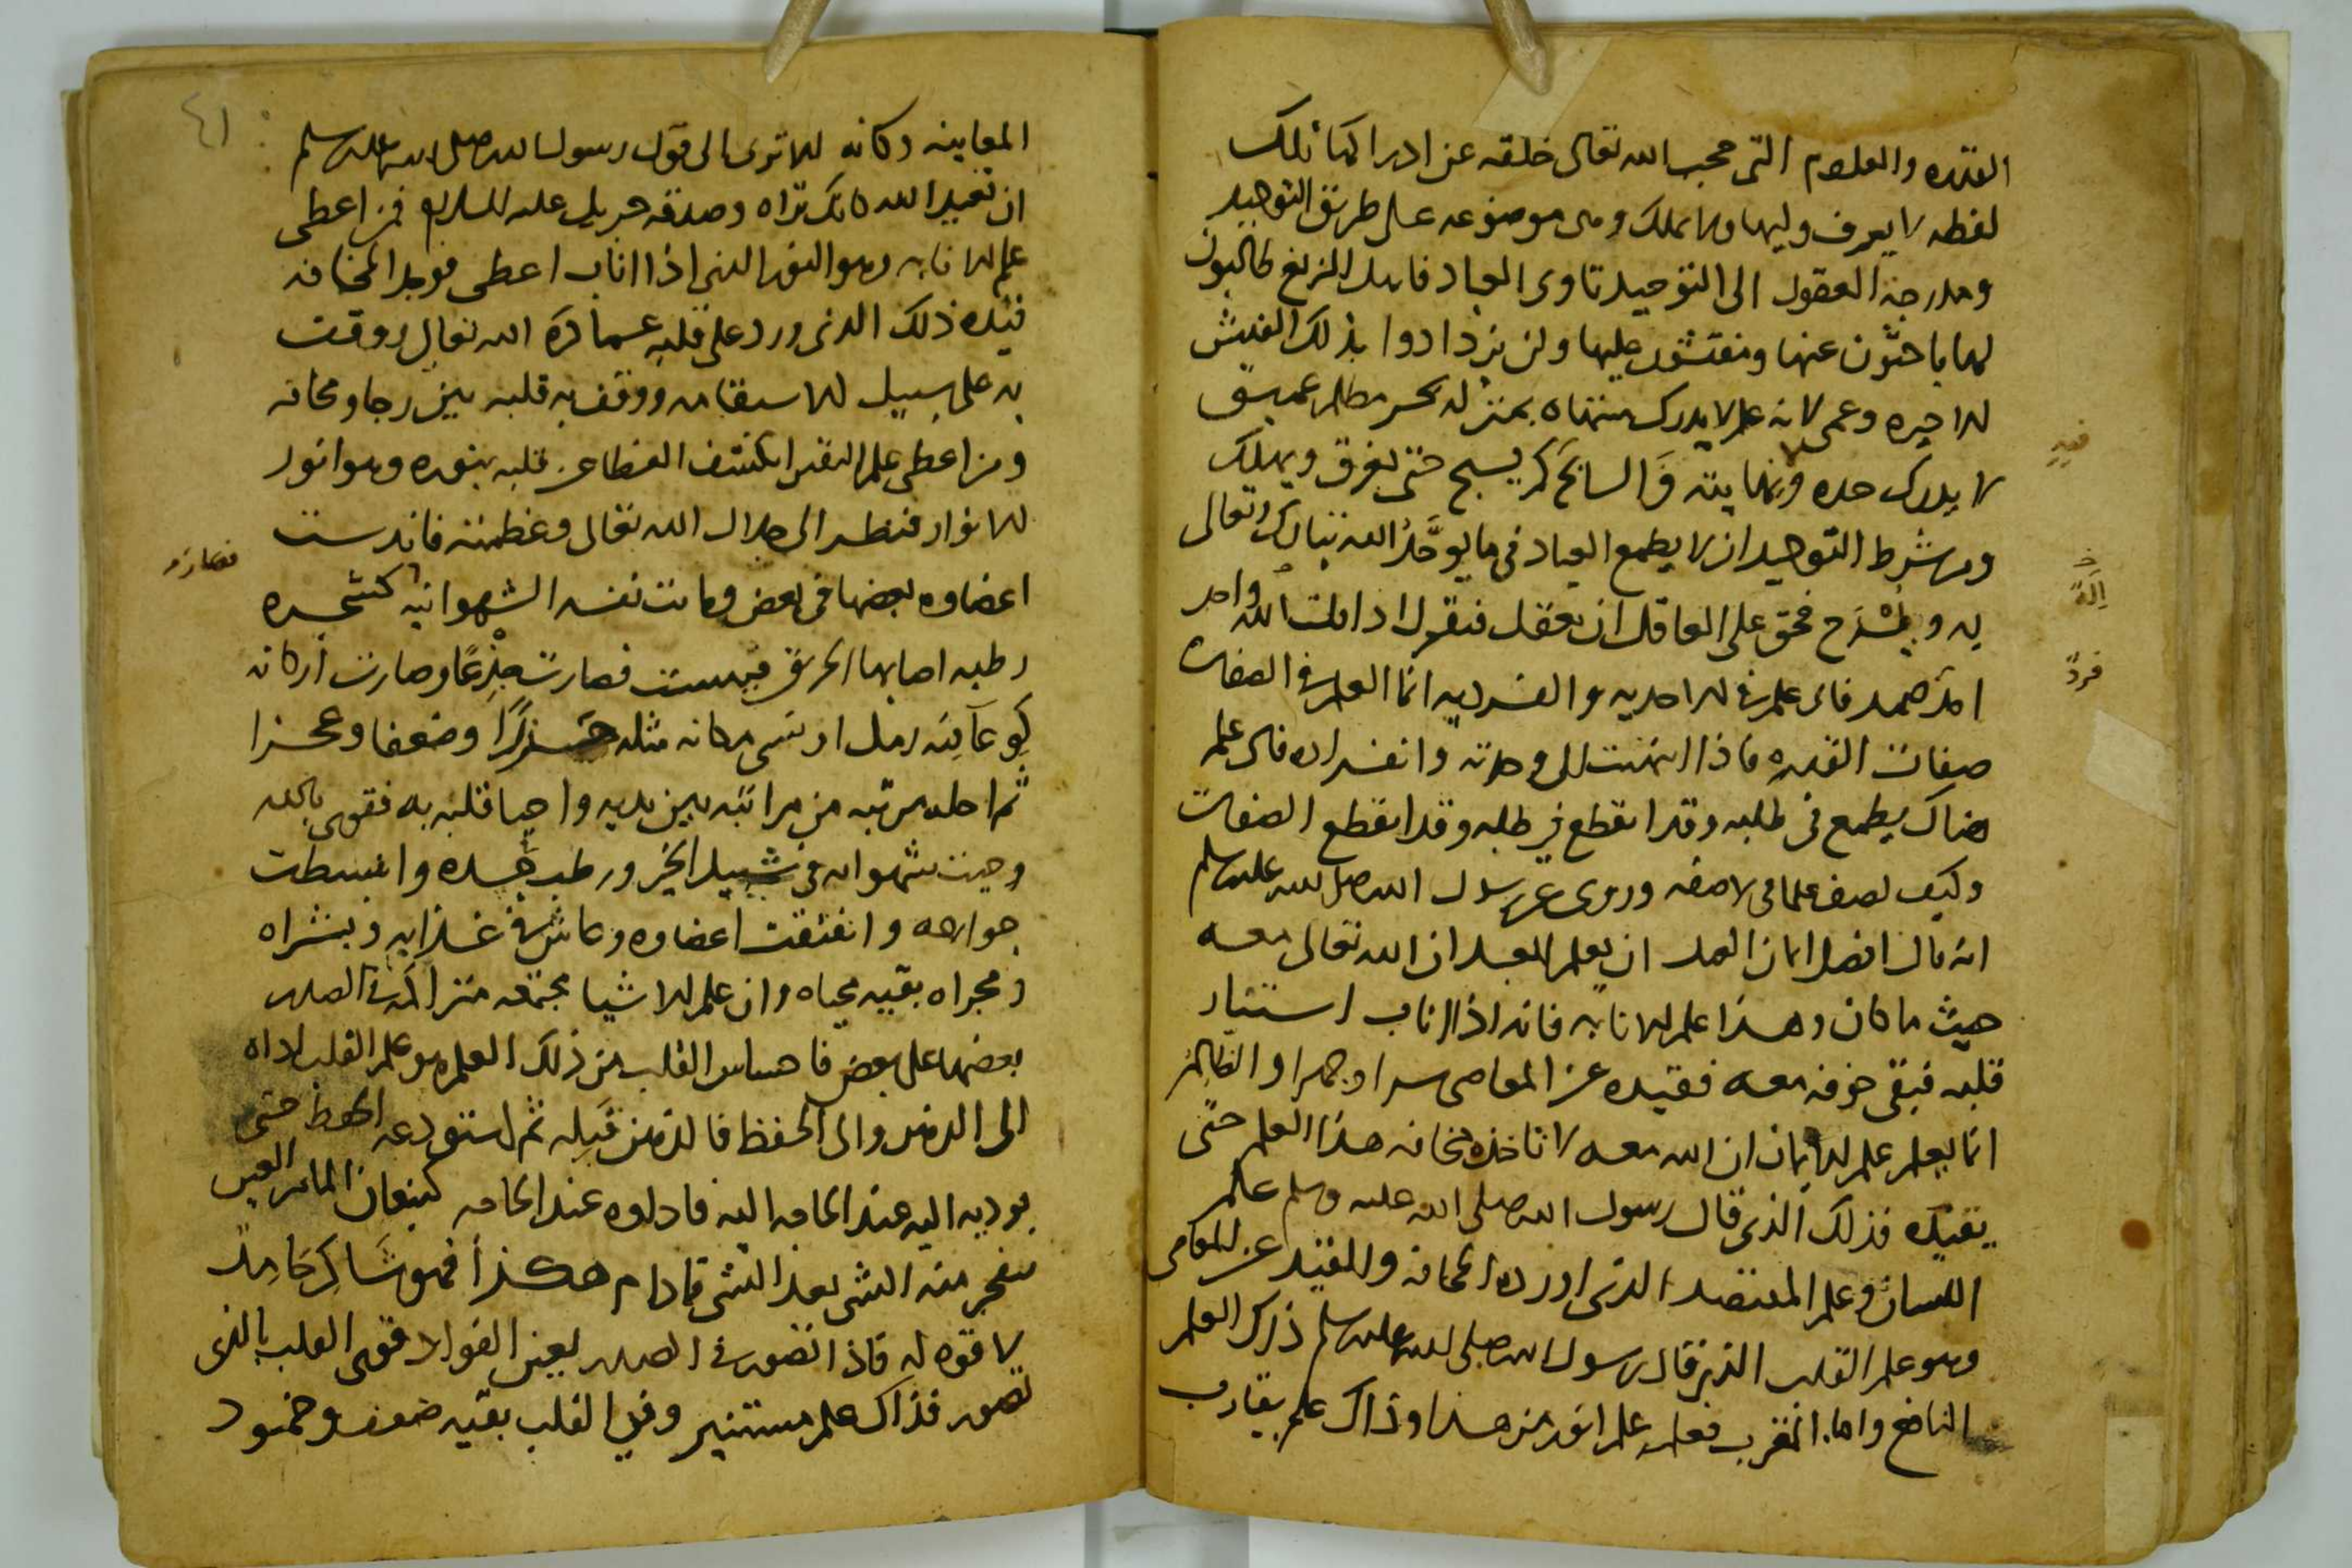 القدره والعلوم التى حجب الله تعالى خلقه عن ادراكها تلك
لفظه لا يعرف وليها ولا يملك وهى موضوعه على طريق التوحيد
ومدرجة العقول الى التوحيد تاوى العباد فاهل الزيغ طالبون
لها باحثون عنها ومفتشون عليها ولن يزدادوا بذلك التفتيش
الا حيره وعمى لانه علم لا يدرك منتهاه بمنزله بحر مظلم عميق
لا يدرك حده ونهايته والسابح كم يسبح حتى يغرق ويهلك
فيه
ومن شرط التوحيد ان لا يطمع العباد فى ما يوحد الله تبارك وتعالى
به ويشرح فحق على العاقل ان يعقل فيقول اذا قلت الله واحد
احد صمد فاى علم فى الاحديه والفرديه انما العلم فى الصفات
فرد
صفات القدره فاذا انتهيت الى وحدته وانفراده فاى علم
هناك يطمع فى طلبه وقد انقطع فى طلبه وقد انقطع الصفات
وكيف تصف علما فى لا صفه وروى عن رسول الله صلى الله عليه وسلم
انه قال افضل ايمان العبد ان يعلم العبد ان الله تعالى معه
حيث ما كان وهذا علم الانابه فانه اذا اناب استنار
قلبه فبقى خوفه معه فقيده عن المعاصى سرا وجهرا والظالم
انما يعلم علم الايمان ان الله معه لا تاخذه مخافه هذا العلم حتى
يقيده فذلك الذى قال رسول الله صلى الله عليه وسلم علم
اللسان وعلم المقتصد الذى اورده المخافه والتقيد عن المعاصى
وهو علم القلب الذى قال رسول الله صلى الله عليه وسلم ذاك العلم
النافع واما المقرب فعلمه علم انور من هذا وذاك علم يقارب
٤١
المعاينه وكانه الا ترى الى قول رسول الله صلى الله عليه وسلم
ان تعبد الله كانك تراه وصدقه جبريل عليه السلام فمن اعطى
علم الانابه وهو النور الذى اذا اناب اعطى فوجد المخافه
قيده ذلك الذى ورد على قلبه عما كره الله تعالى ووقف
به على سبيل الاستقامه ووقف به قلبه بين رجا ومخافه
ومن اعطى علم اليقين انكشف الغطا عن قلبه بنوره وهو انور
الانوار فنظر الى جلال الله تعالى وعظمته فاندرست
اعضاوه بعضها فى بعض وكانت نفسه الشهوانيه كشجره
فصارت
رطبه اصابها الحريق فيبست فصارت جذعا وصارت اركانه
ثم احله مرتبه من مراتبه بين يديه واحيا قلبه به فقوى بالله
وحييت شهواته فى سبيل الخير ورطب جسده وانبسطت
جوارحه وانفتقت اعضاوه وعاش فى غذايه وبشراه
ومجراه بقيه محياه وان علم الاشيا مجتمعه متراكمه فى الصدر
بعضها على بعض فاحساس القلب من ذلك العلم هو علم القلب اداه
الى الذهن والى الحفظ فالذهن قبله ثم استودعه الحفظ حتى
يوديه اليه عند الحاجه اليه فاداوه عند الحاجه كينعان الما من العين
ينفجر منه الشى بعد الشى فما دام هكذا فهو شاكر حامد
لا قوه له فاذا تصور فى الصدر لعين الفواد قوى القلب بالذى
تصور فذاك علم مستنير وفى القلب بقيه ضعف وخمود